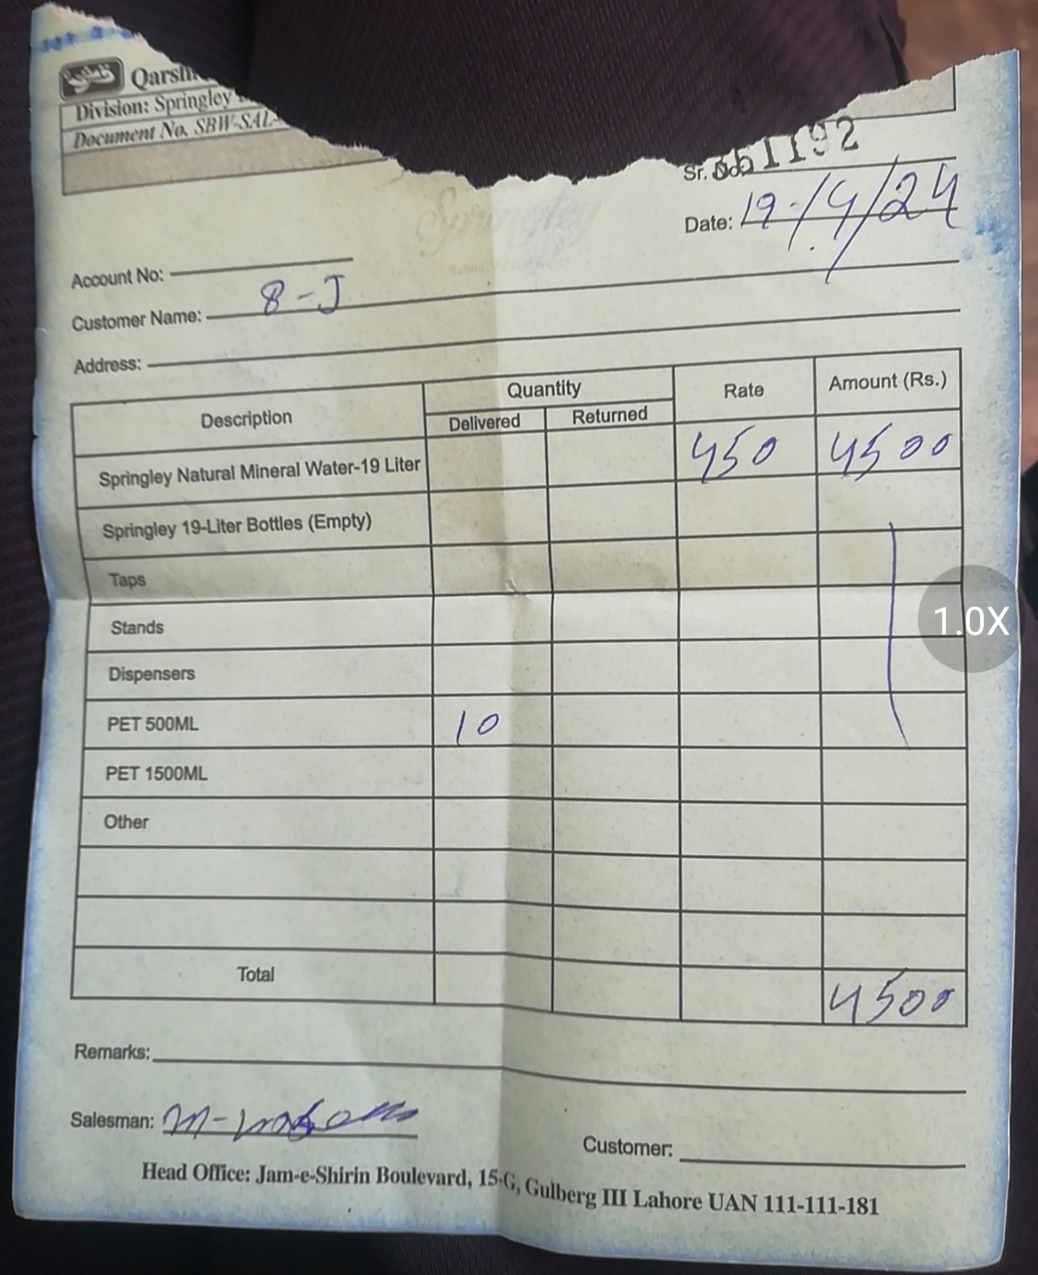 Division: Springley
Document No. SBW-SAL-
Sr. 1192
Date: 19/4/24
Springley
Account No:
Customer Name: 8-J
Address:
Description Quantity Rate Amount (Rs.)
Delivered Returned
Springley Natural Mineral Water-19 Liter 450 4500
Springley 19-Liter Bottles (Empty)
Taps
Stands
1.0X
Dispensers
PET 500ML 10
PET 1500ML
Other
Total 4500
Remarks:
Salesman:
Customer:
Head Office: Jam-e-Shirin Boulevard, 15-G, Gulberg III Lahore UAN 111-111-181